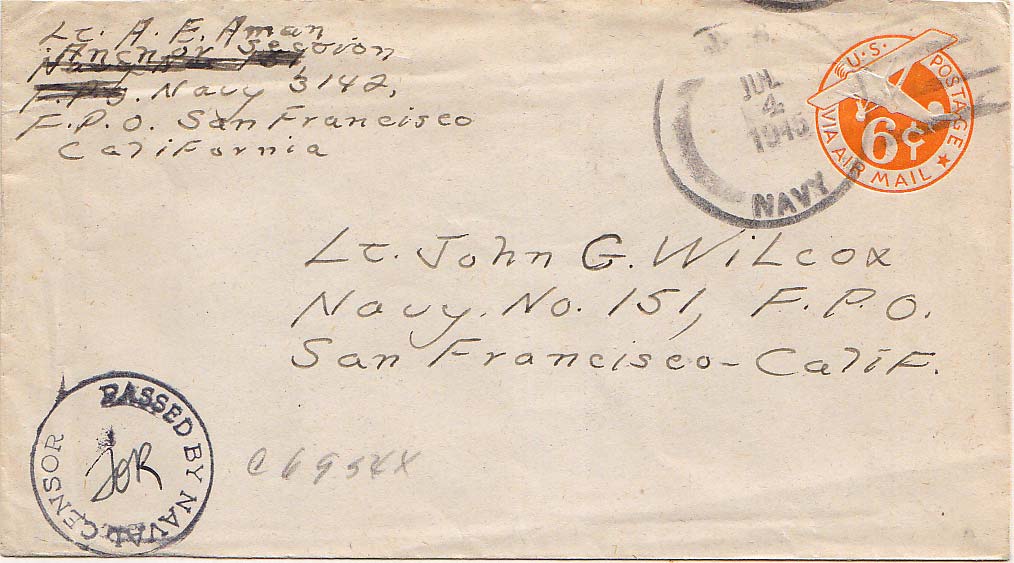 Lt. A. E. Aman
Navy 3142,
F.P.O. San Francisco
California
JUL
4
1945
NAVY
U.S. POSTAGE
VIA AIR MAIL
6¢
Lt. John G. Wilcox
Navy No. 151, F.P.O.
San Francisco - Calif.
PASSED BY NAVAL CENSOR
JOR
C6954X